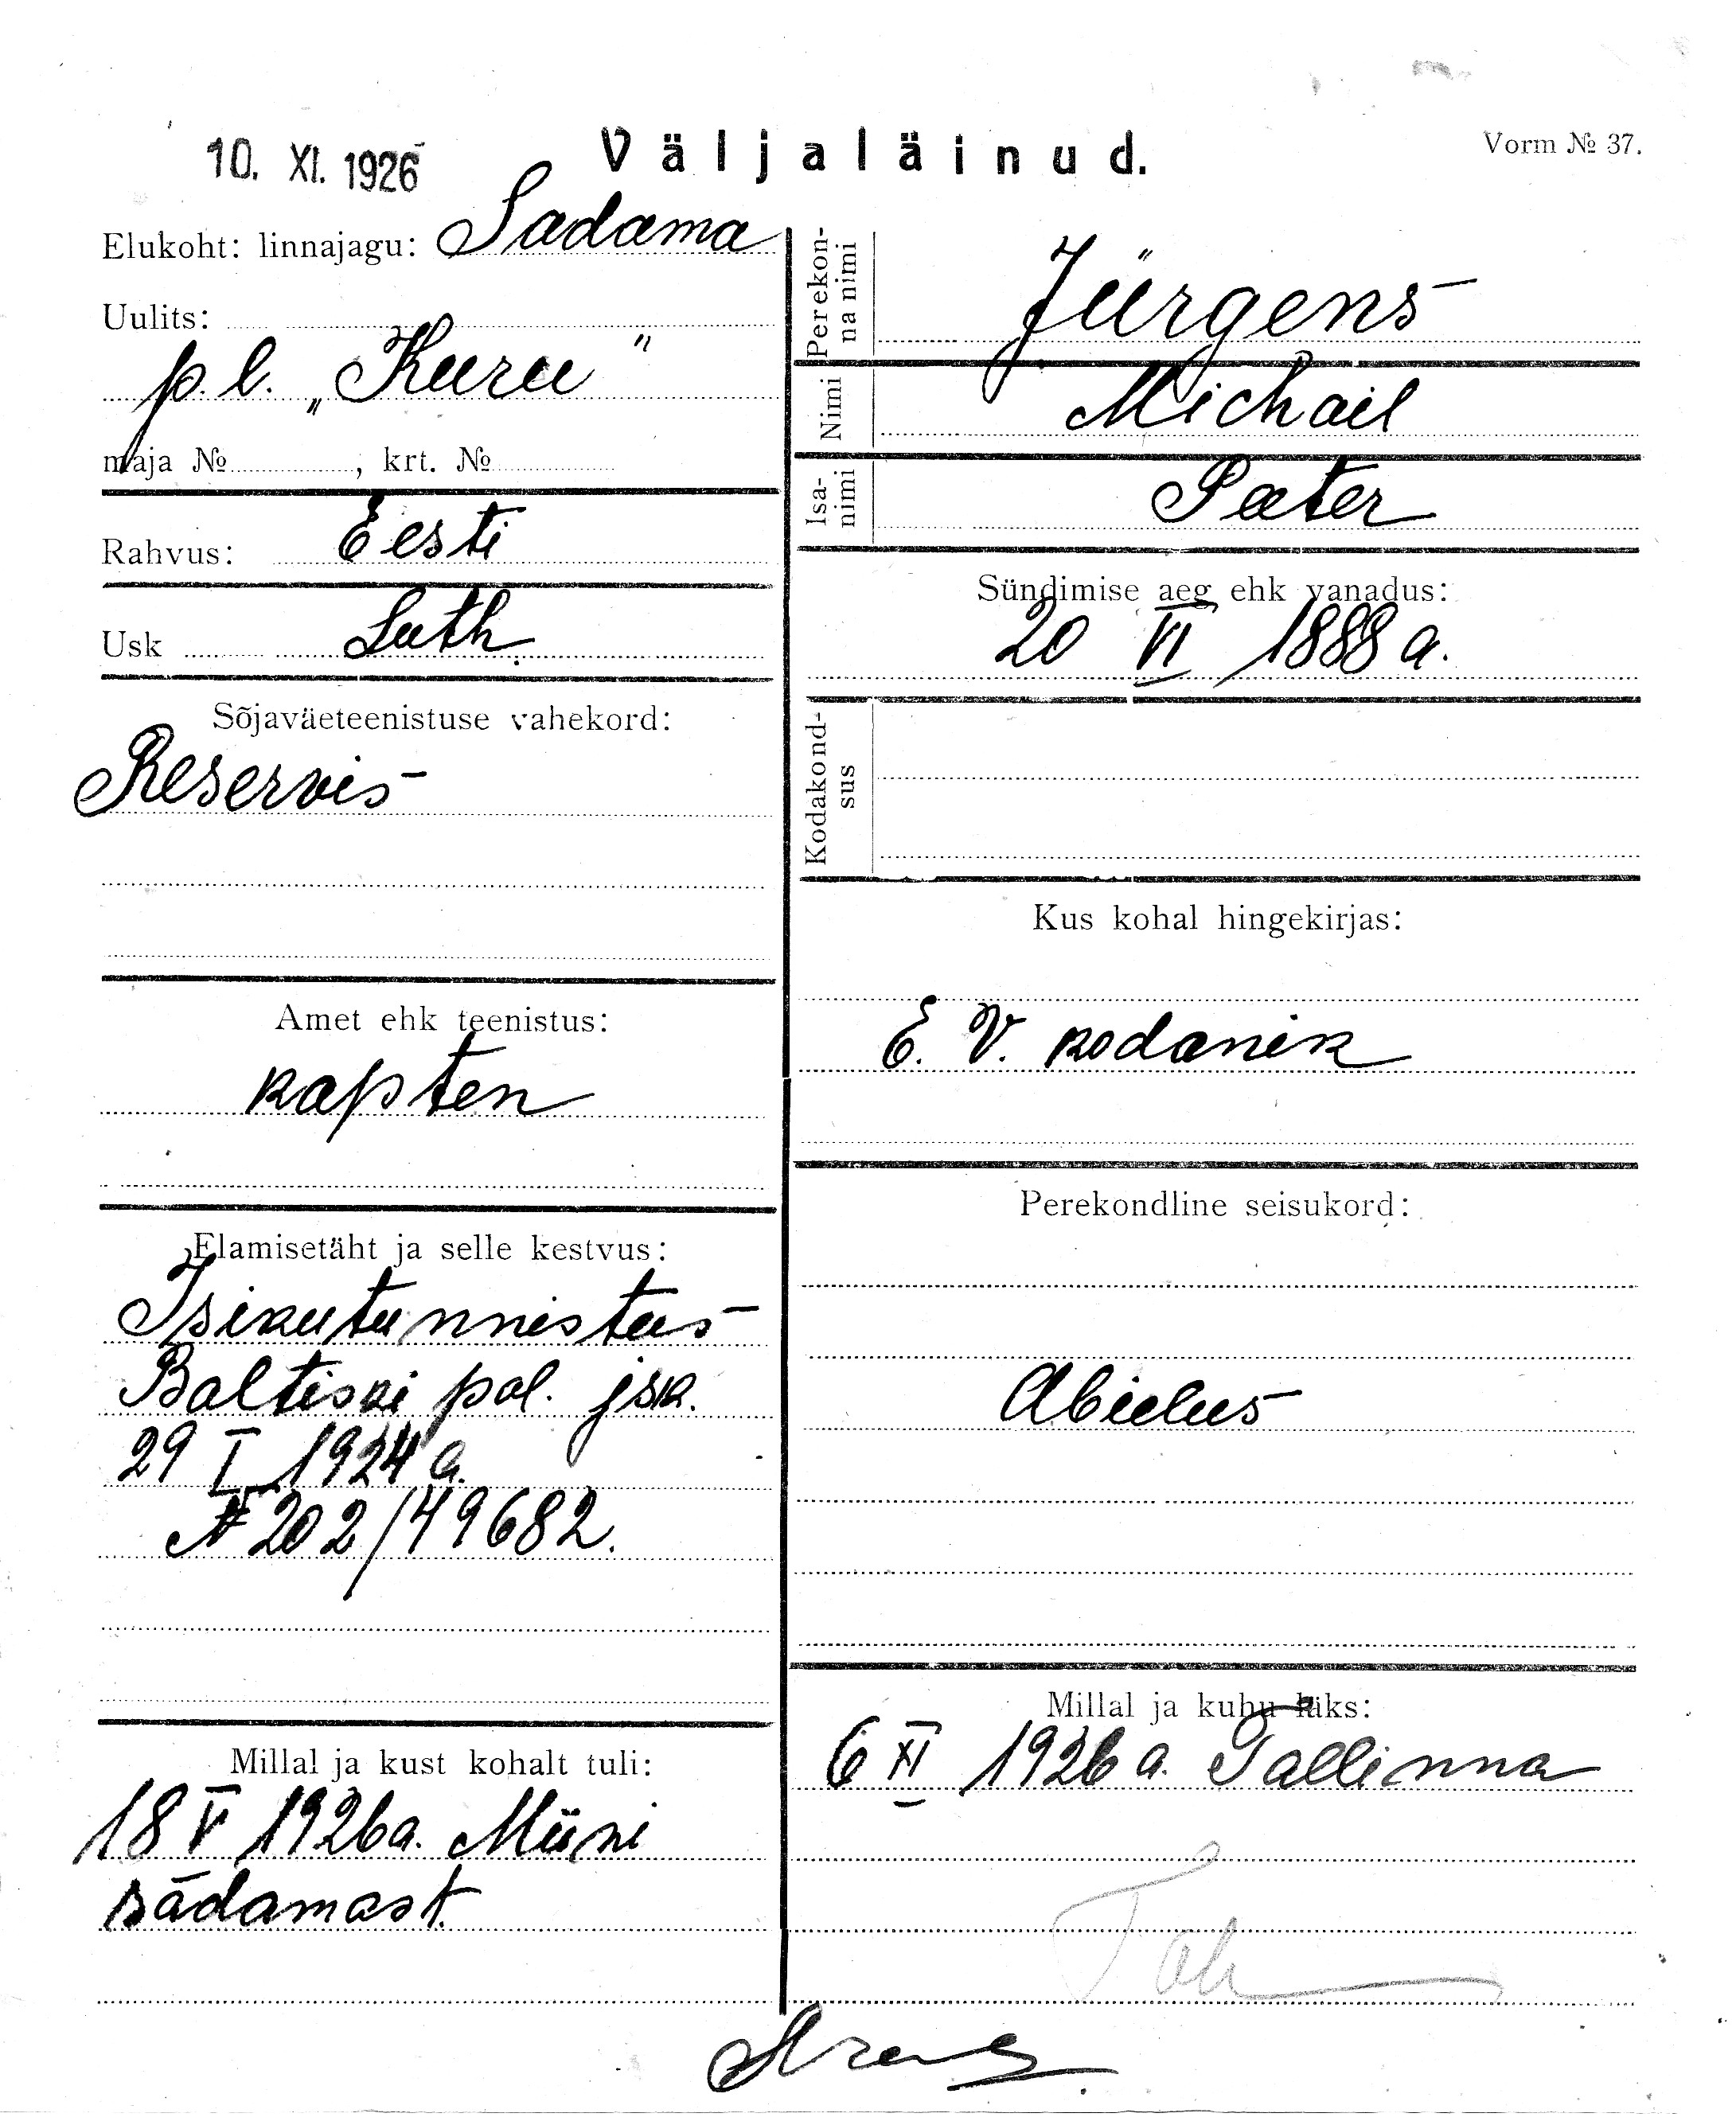 10. XI. 1926
Väljaläinud.
Vorm № 37.
Elukoht: linnajagu: Sadama
Uulits:
p. l. „Kuru"
maja № , krt. №
Rahvus: Eesti
Usk Luth.
Sõjaväeteenistuse vahekord:
Reservis
Amet ehk teenistus:
kapten
Elamisetäht ja selle kestvus:
Isikutunnistus
Baltiski pol. jsk.
29 I 1924 a.
№ 202/49682.
Millal ja kust kohalt tuli:
18 V 1926 a. Miini
sadamast.
Perekon-
na nimi
Jürgens
Nimi
Michail
Isa-
nimi
Peeter
Sündimise aeg ehk vanadus:
20 VI 1888 a.
Kodakond-
sus
Kus kohal hingekirjas:
E. V. kodanik
Perekondline seisukord:
Abielus
Millal ja kuhu läks:
6 XI 1926 a. Tallinna